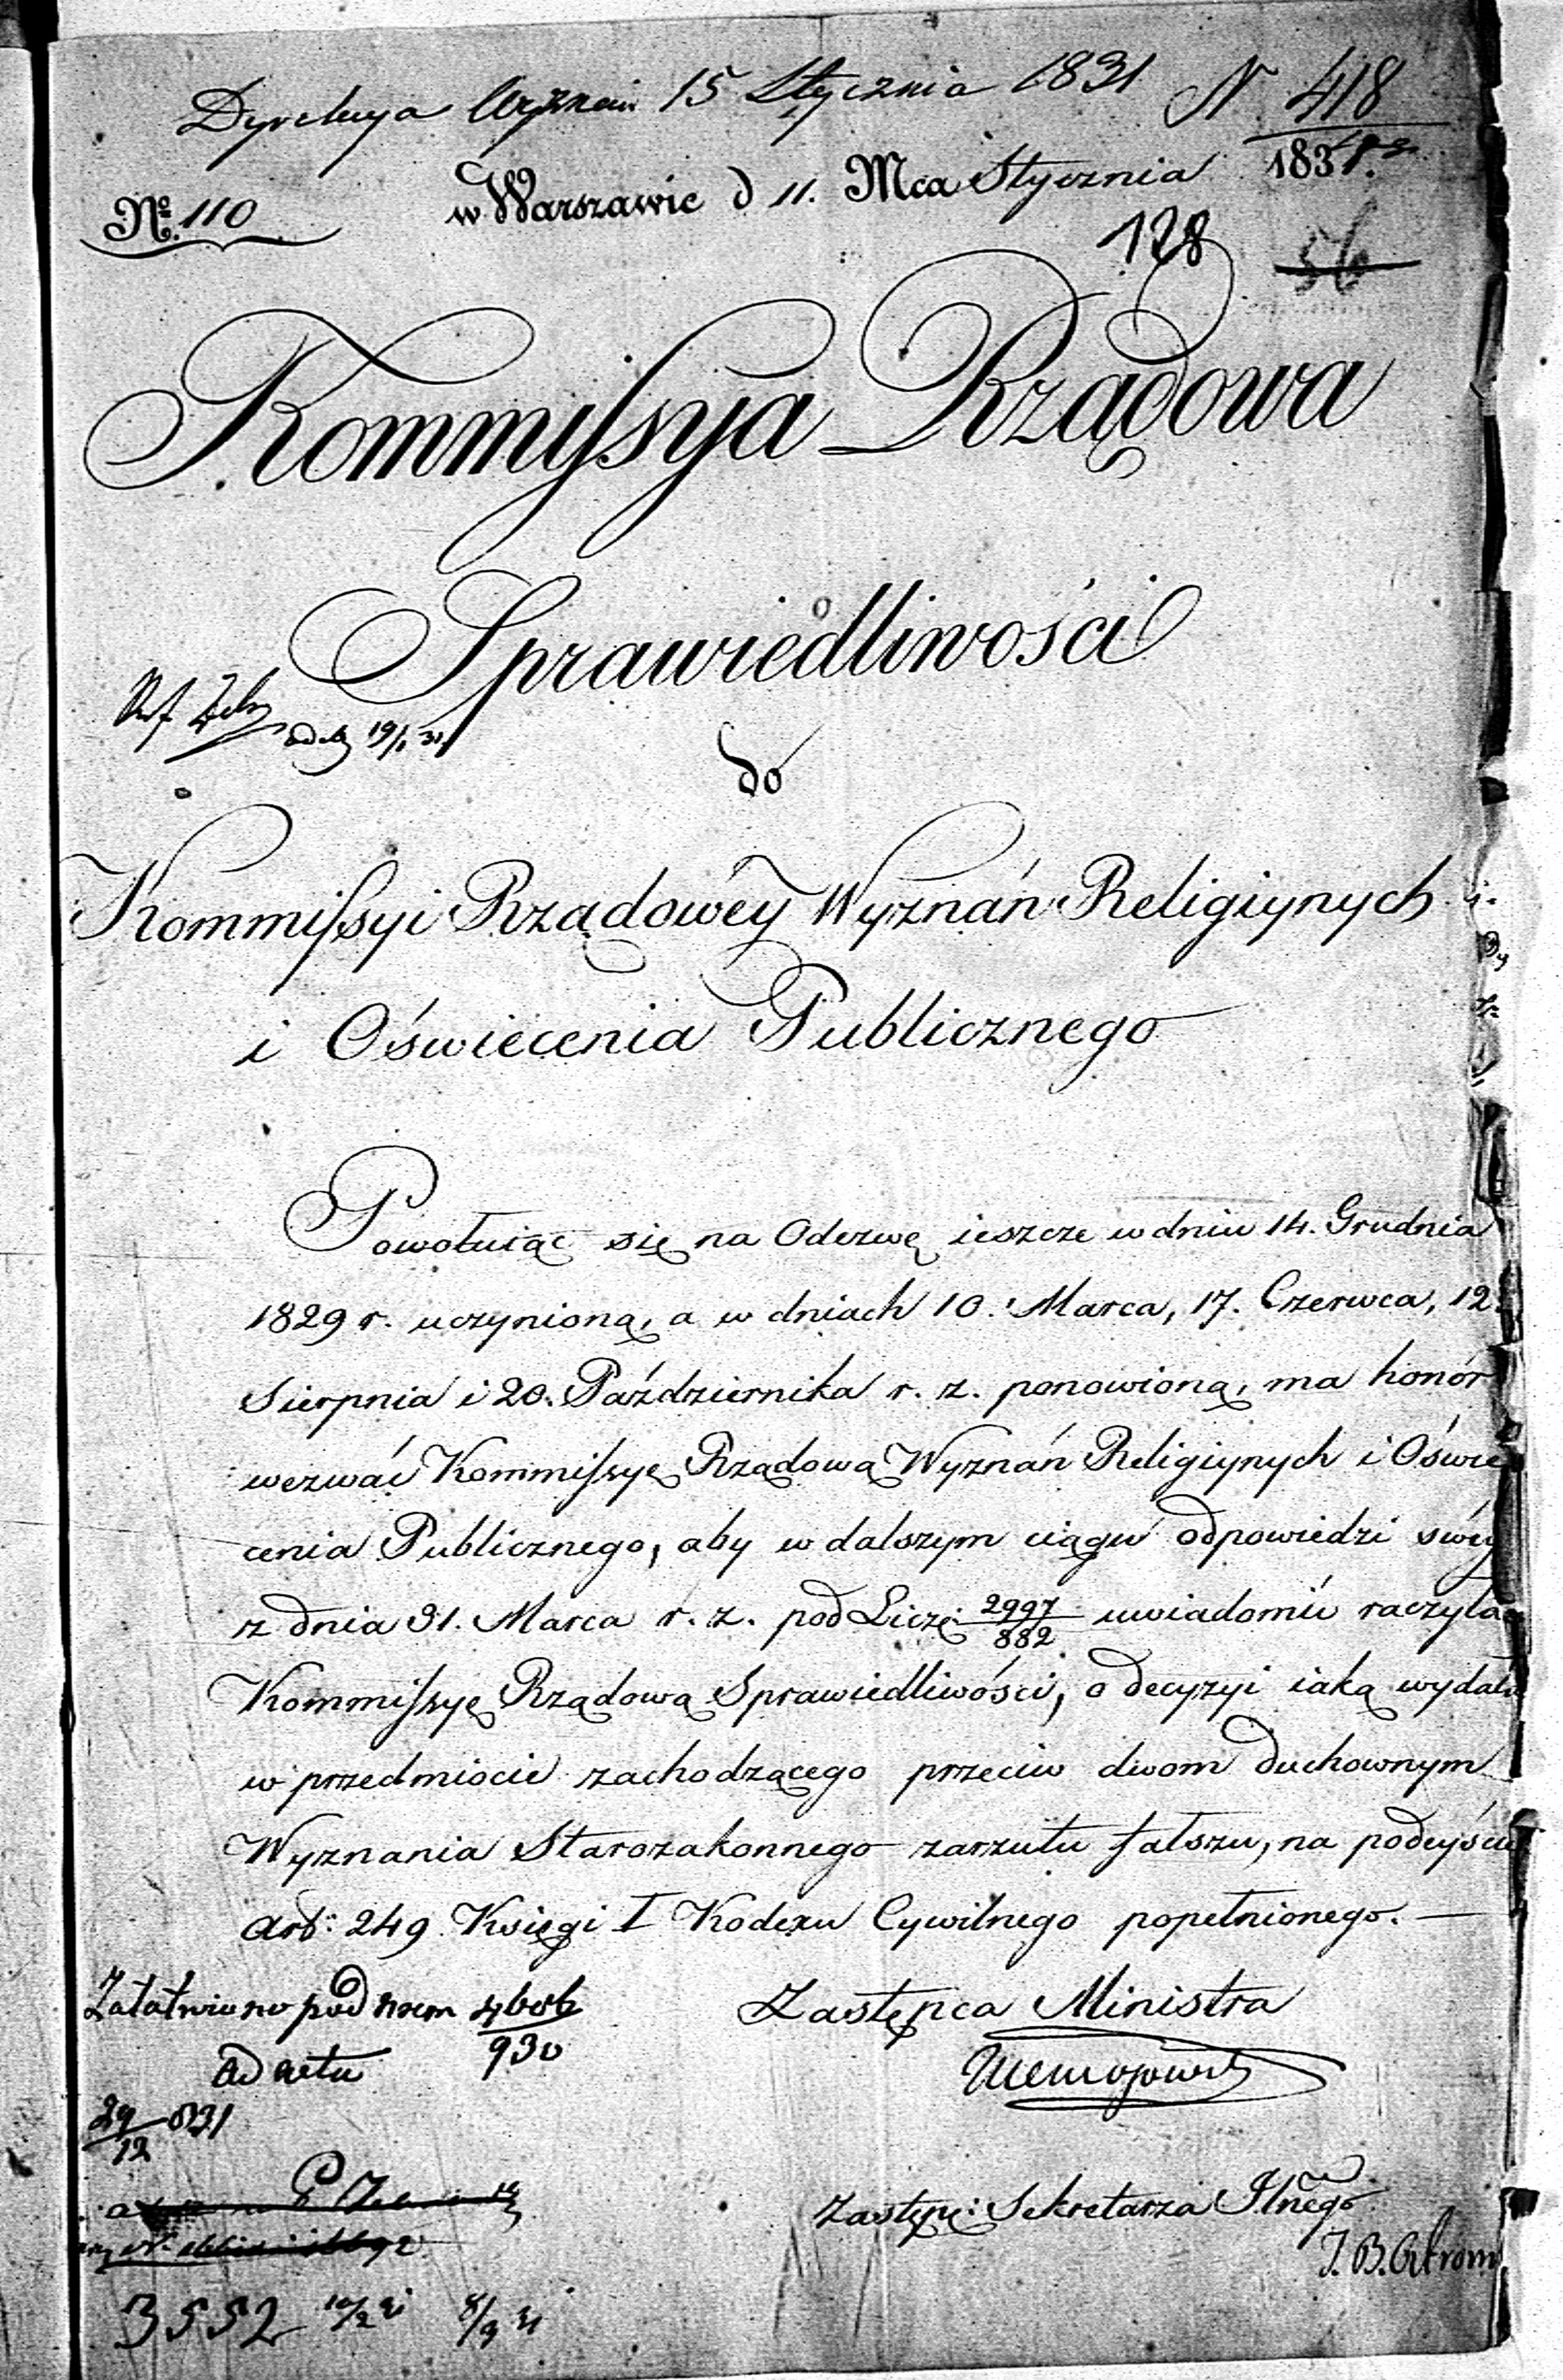 15 Stycznia 1831 N 418
w Warszawie d 11. Mca Stycznia 1831.
No. 110
128 56
Kommissya Rządowa
Sprawiedliwości
19/1 31
do
Kommissyi Rządowéy Wyznań Religiynych
i Oświecenia Publicznego
Powołuiąc się na Odezwę ieszcze w dniu 14. Grudnia
1829 r. uczynioną, a w dniach 10. Marca, 17. Czerwca, 12.
Sierpnia i 20. Października r. z. ponowioną, ma honór
wezwać Kommissyę Rządową Wyznań Religiynych i Oświe
cenia Publicznego, aby w dalszym ciągu odpowiedzi swéy
z dnia 31. Marca r. z. pod Liczę: 2997/882 uwiadomić raczyła
Kommissyę Rządową Sprawiedliwości, o decyzyi iaką wydała
w przedmiocie zachodzącego przeciw dwom duchownym
Wyznania Starozakonnego zarzutu fałszu, na podeyście
Art: 249 Księgi I Kodexu Cywilnego popełnionego. —
Załatwiono pod nrem 930
Zastępca Ministra
Ad acta
29/12 831
Zastęp: Sekretarza Jlnego
J. B.
3552